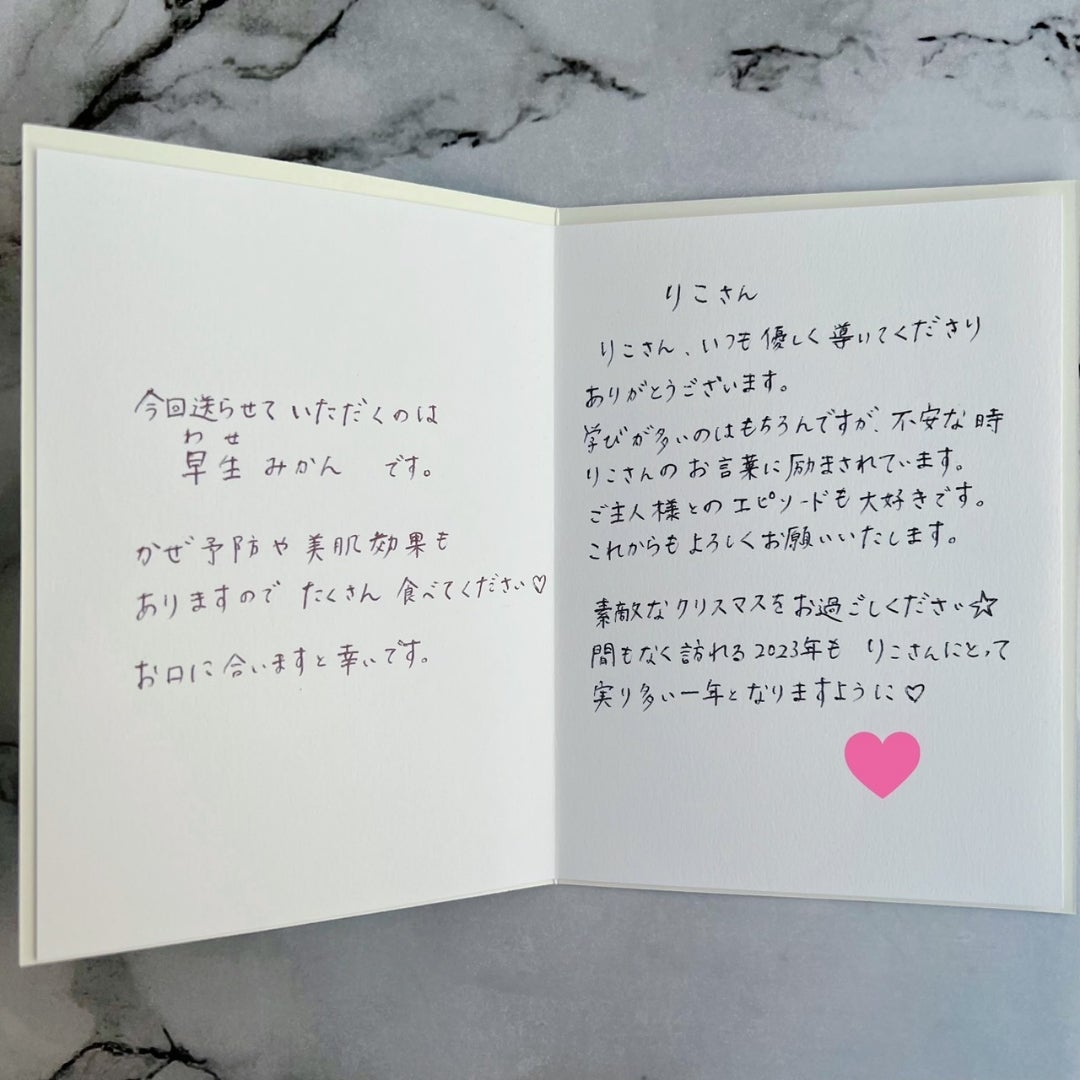 今回送らせていただくのは
わせ
早生みかん です。
かぜ予防や美肌効果も
ありますので たくさん 食べてください♡
お口に合いますと幸いです。
りこさん
りこさん、いつも優しく導いてくださり
ありがとうございます。
学びが多いのはもちろんですが、不安な時
りこさんのお言葉に励まされています。
ご主人様とのエピソードも大好きです。
これからもよろしくお願いいたします。
素敵なクリスマスをお過ごしください☆
間もなく訪れる2023年も りこさんにとって
実り多い一年となりますように♡